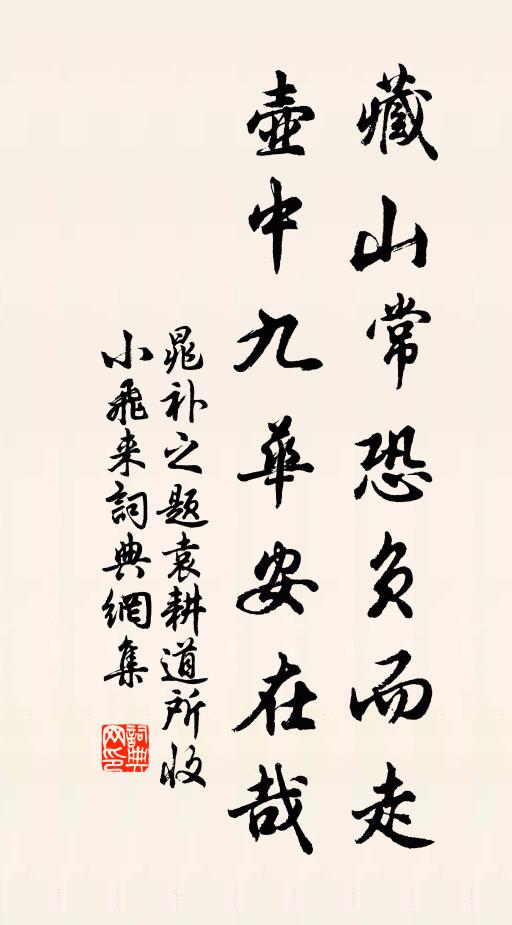 藏山常恐负而走
壶中九華安在哉
晁补之题袁耕道所收
小飛来詞典網集
詞典網印